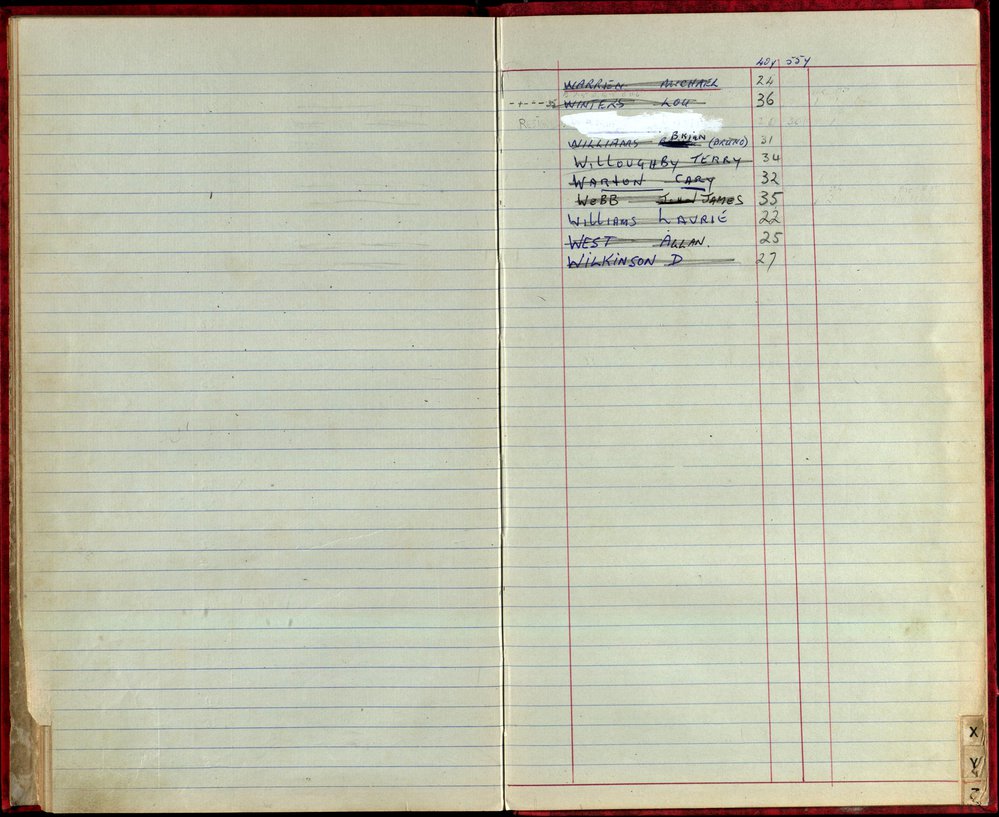 40y 55y
WARREN MICHAEL 24
WINTERS LOU 36
WILLIAMS BRIAN (BRUNO) 31
WILLOUGHBY TERRY 34
WARTON CARY 32
WEBB JOHN JAMES 35
WILLIAMS LAURIE 22
WEST ALLAN. 25
WILKINSON D 27
X
Y
Z